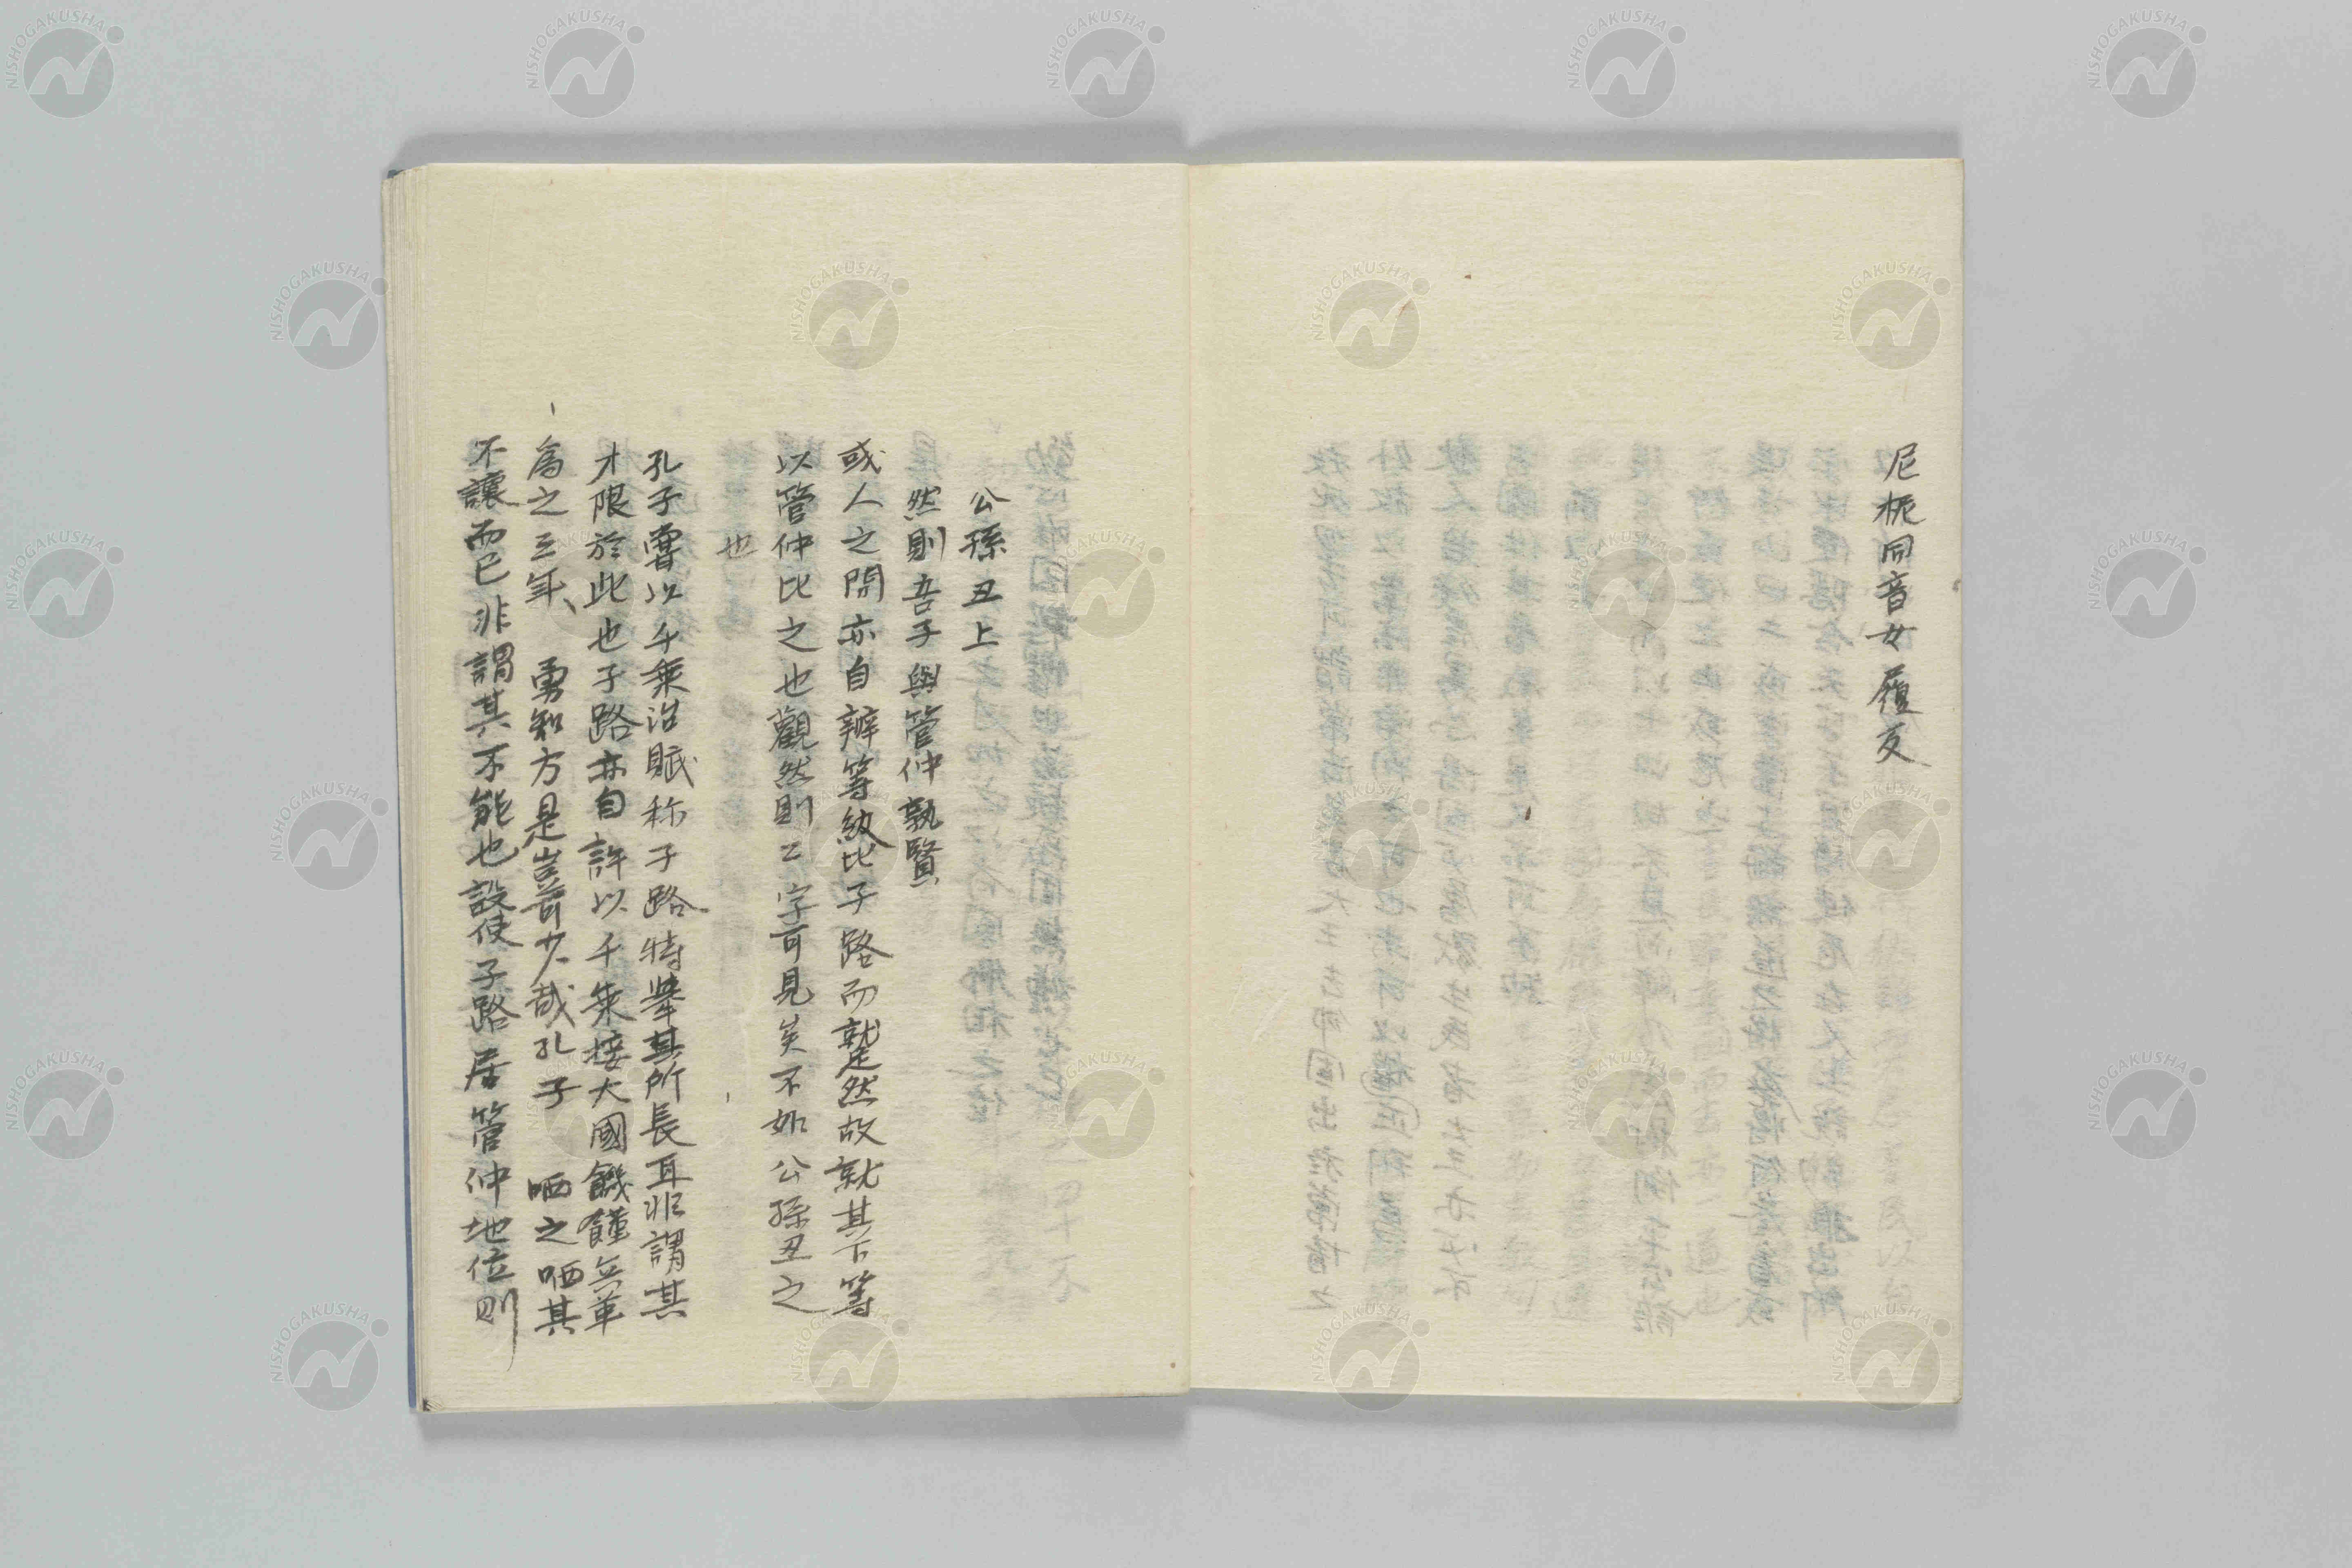 尼柅同音女履反
公孫丑上
然則吾子與管仲孰賢
或人之問亦自辨等級比子路而蹵然故就其下等
以管仲比之也觀然則二字可見矣不如公孫丑之
也
孔子嘗以千乗治賦称子路特擧其所長耳非謂其
才限於此也子路亦自許以千乗接大國饑饉兵革
為之三年、勇知方是豈可少哉孔子哂之哂其
不讓而已非謂其不能也設使子路居管仲地位則
NISHOGAKUSHA